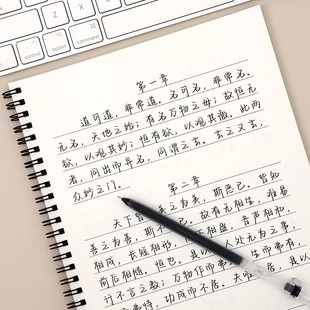 option
command
第一章
道可道，非常道。名可名，非常名。
无名，天地之始；有名万物之母；故恒无
欲，以观其妙；恒有欲，以观其徼。此两
者，同出而异名，同谓之玄，玄之又玄，
众妙之门。
第二章
天下皆美之为美，斯恶已。皆知
善之为善，斯不已。故有无相生，难易
相成，长短相形，下相盈，音声相和，
前后相随。恒也。是以人处无为之事，
行不言之教；万物作而弗，生而弗有，
弗恃，功成而不居。夫唯居，是以